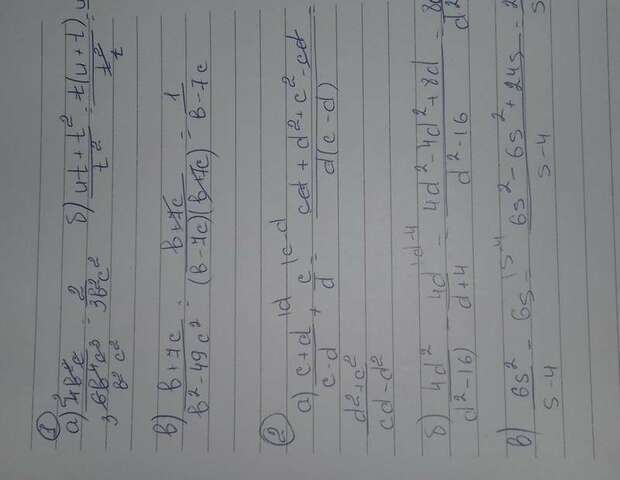 1
а) 4b²c / 6b⁴c³ = 2 / 3b²c² б) ut + t² / t² = t(u + t) / t² = u
в) b+7c / b² - 49c² = b+7c / (b-7c)(b+7c) = 1 / b-7c
2
а) c+d / c-d + c / d = cd + d² + c² - cd / d(c-d) =
d² + c² / cd - d²
б) 4d² / d² - 16) - 4d / d+4 = 4d² - 4d² + 8d / d² - 16 = 8d / d²
в) 6s² / s-4 - 6s = 6s² - 6s² + 24s / s-4 = 2 / s